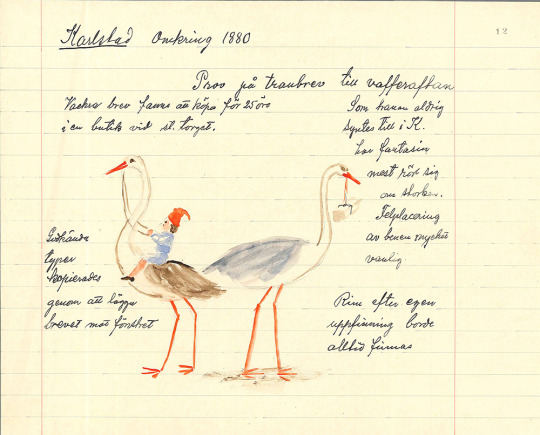 Karlstad Omkring 1880
12
Prov på tranbrev till vafferaftan
Vackra brev fanns att köpa för 25 öre
i en butik vid st. torget.
Som tranan aldrig
syntes till i K.
har fantasin
mest rört sig
om storken.
Felplacering
av benen mycket
vanlig
Godkända
typer
kopierades
genom att lägga
brevet mot fönstret
Rim efter egen
uppfinning borde
alltid finnas